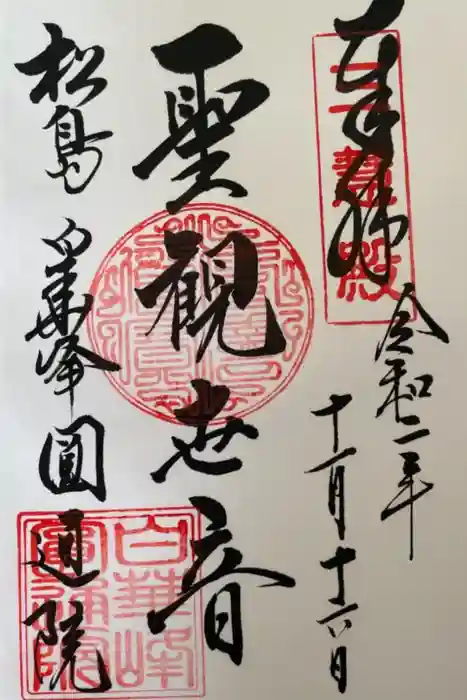 奉拝
三慧殿
令和二年
十一月十六日
聖観世音
松島
白華峰
圓通院
白華峰
圓通院